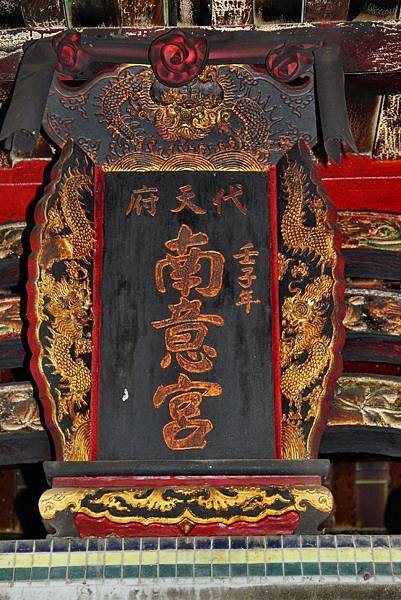 代天府
壬子年
南意宮